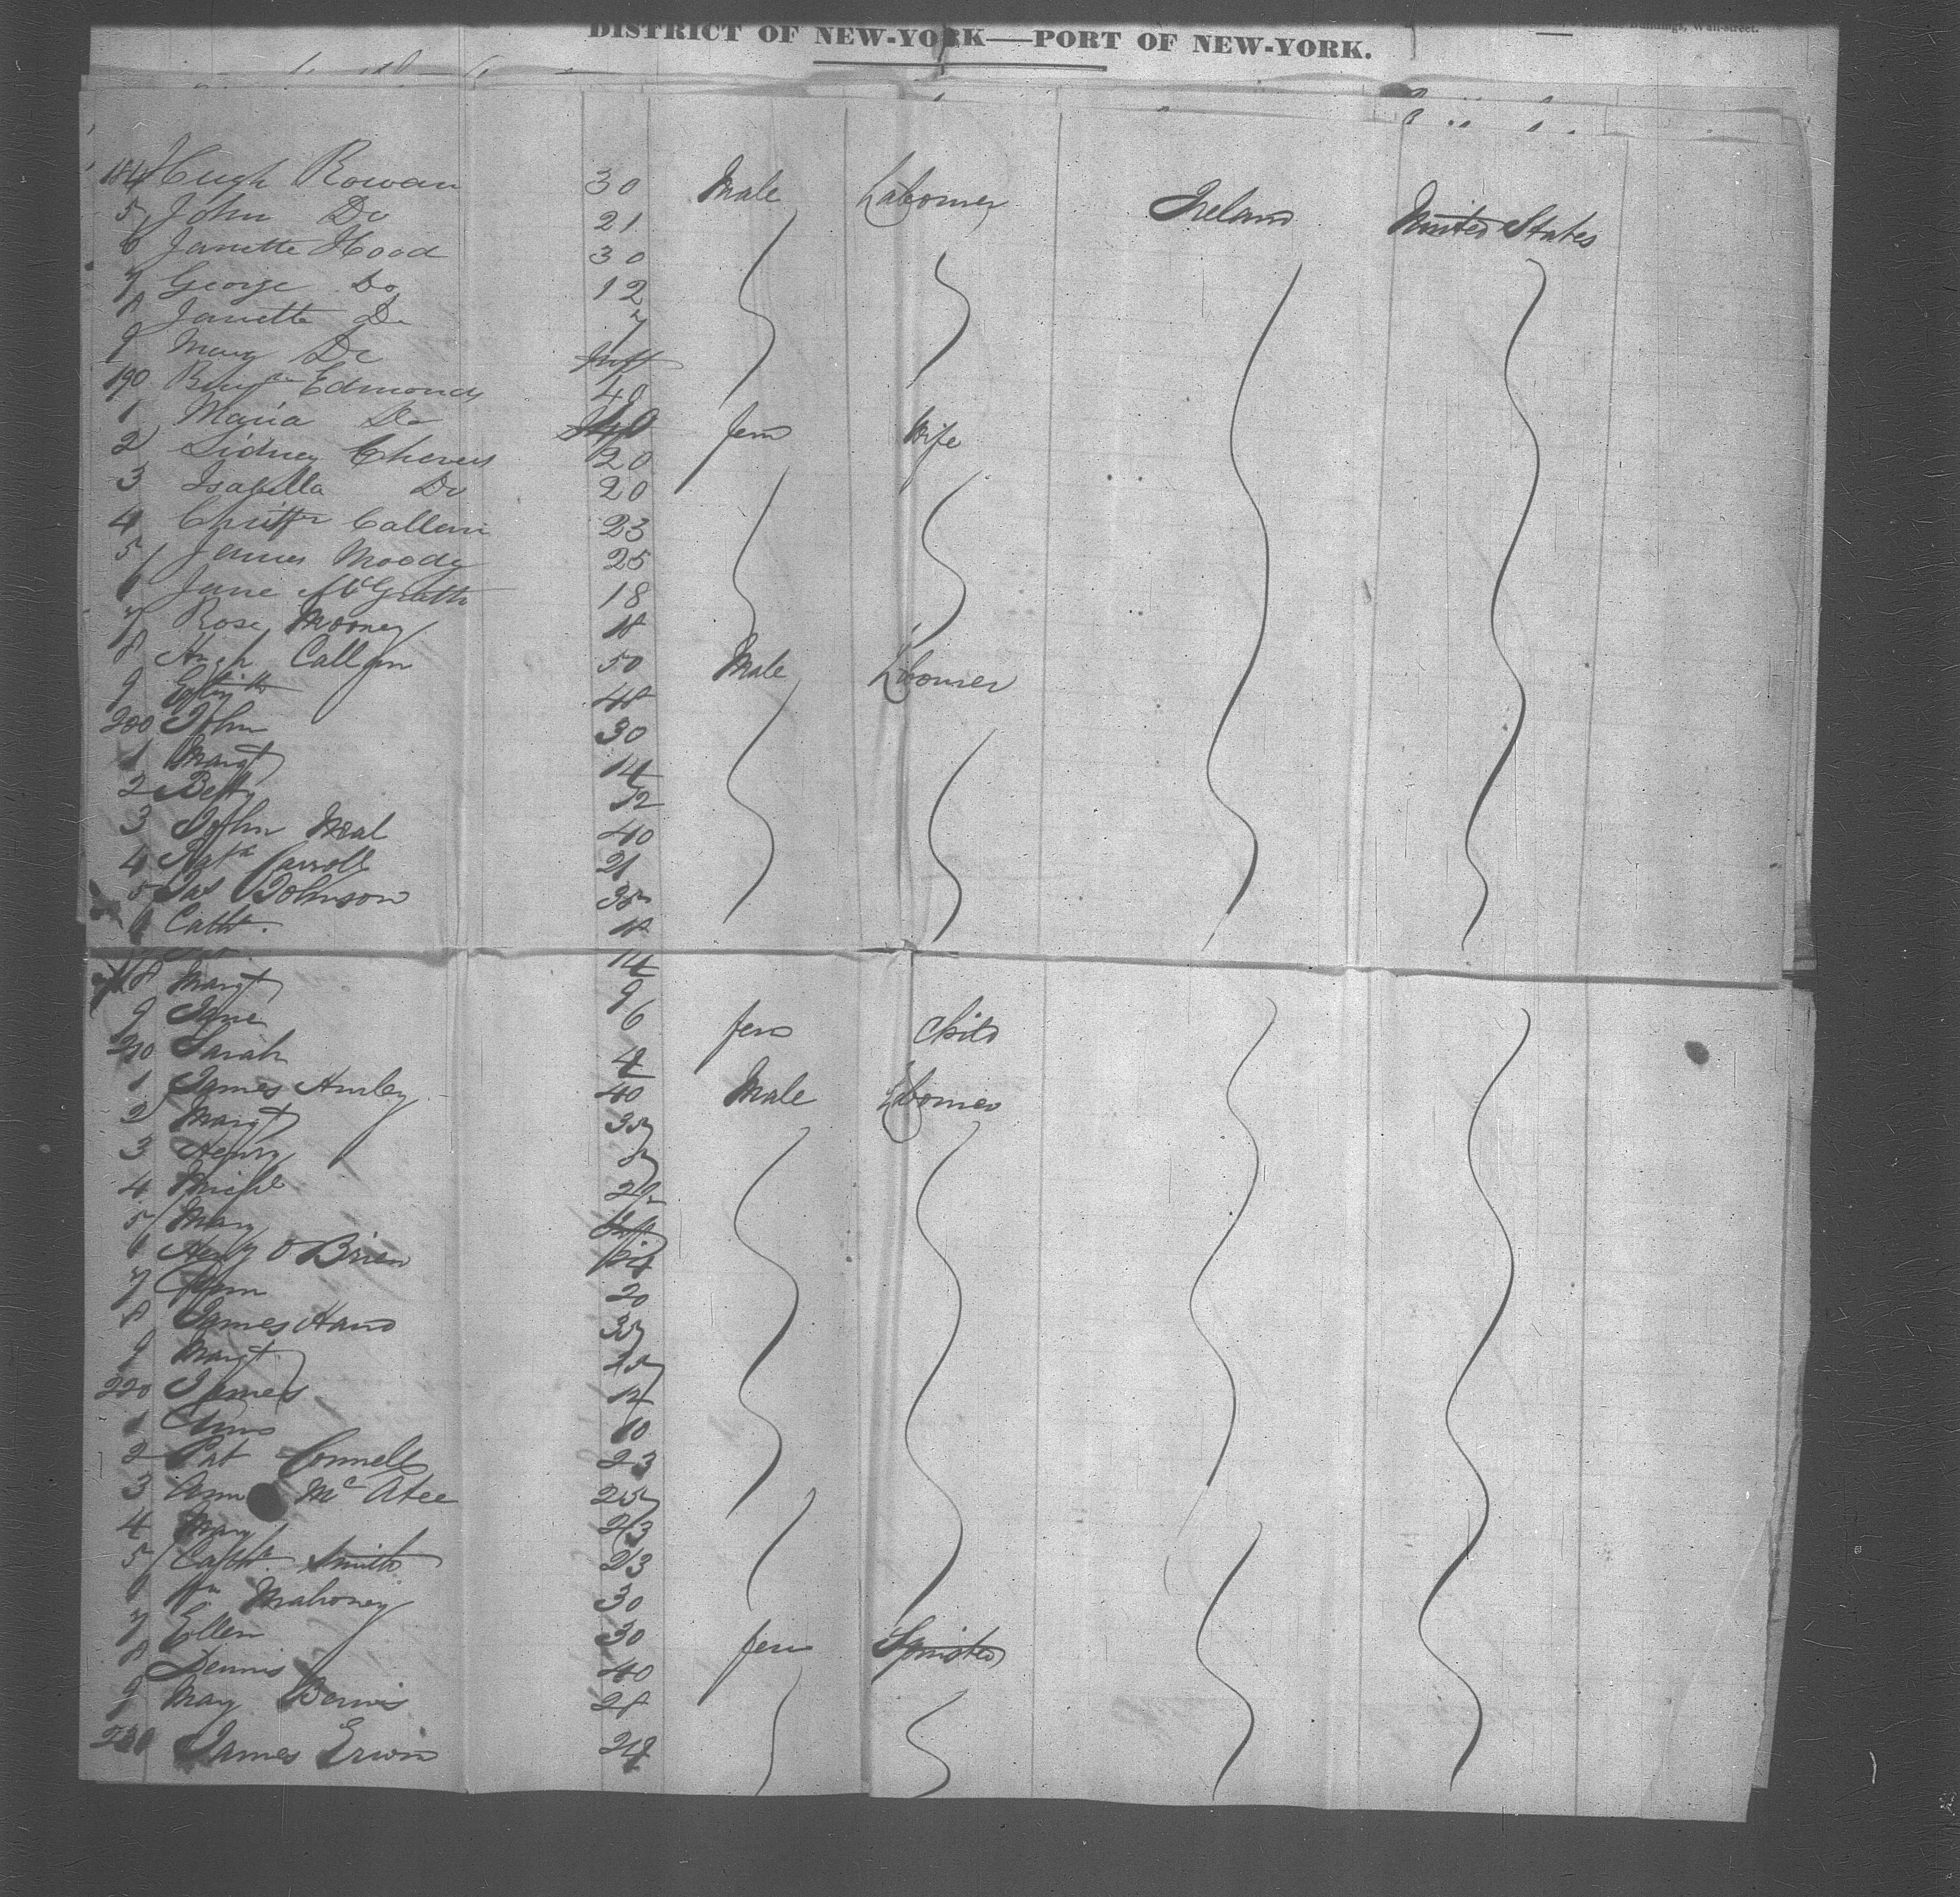 DISTRICT OF NEW-YORK—PORT OF NEW-YORK.
184 Hugh Rowan 30 Male Labourer Ireland United States
5 John Do 21
6 Janette Hood 30
7 George Do 12
8 Janette Do 7
9 Mary Do Inft
190 Benjn Edmonds 40
1 Maria Do 40 fem Wife
2 Sidney 20
3 Isabella Do 20
4 23
5 James Moody 25
6 Jane McGrath 18
7 Rose Mooney 18
8 Hugh Callan 50 Male Labourer
9 48
200 John 30
1 Margt 14
2 Betty 12
3 John Neal 40
4 Carroll 21
5 Jas Johnson 35
6 Cathe. 18
14
8 Margt 9
9 Jane 6 fem Child
210 Sarah 4
1 James Hurley 40 Male Labourer
2 Margt 35
3 Henry
4 Michl
5 Mary Inft
6 Henry O Brien
7 Ann 20
8 James Hand 35
9 Margt 25
220 James 12
1 Ann 10
2 Pat Connell 23
3 Ann Mc Atee 25
4 Mary 23
5 Cathe Smith 23
6 Wm Mahoney 30
7 Ellen 30 fem Spinster
8 Dennis 40
9 Mary 28
230 James Erwin 24